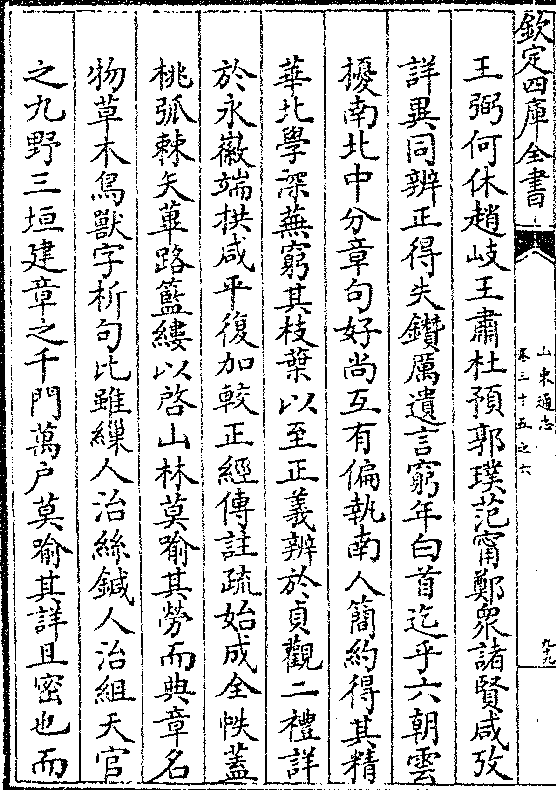 欽定四庫全書
山東通志
卷三十五之六
九九
王弼何休趙岐王肅杜預郭璞范甯鄭衆諸賢咸攷
詳異同辨正得失鑽厲遺言窮年白首迄乎六朝雲
擾南北中分章句好尚互有偏執南人簡約得其精
華北學深蕪窮其枝葉以至正義辨於貞觀二禮詳
於永徽端拱咸平復加較正經傳註疏始成全帙蓋
桃弧棘矢蓽路籃縷以啓山林莫喻其勞而典章名
物草木鳥獸字析句比雖繅人治絲鍼人治組天官
之九野三垣建章之千門萬户莫喻其詳且密也而